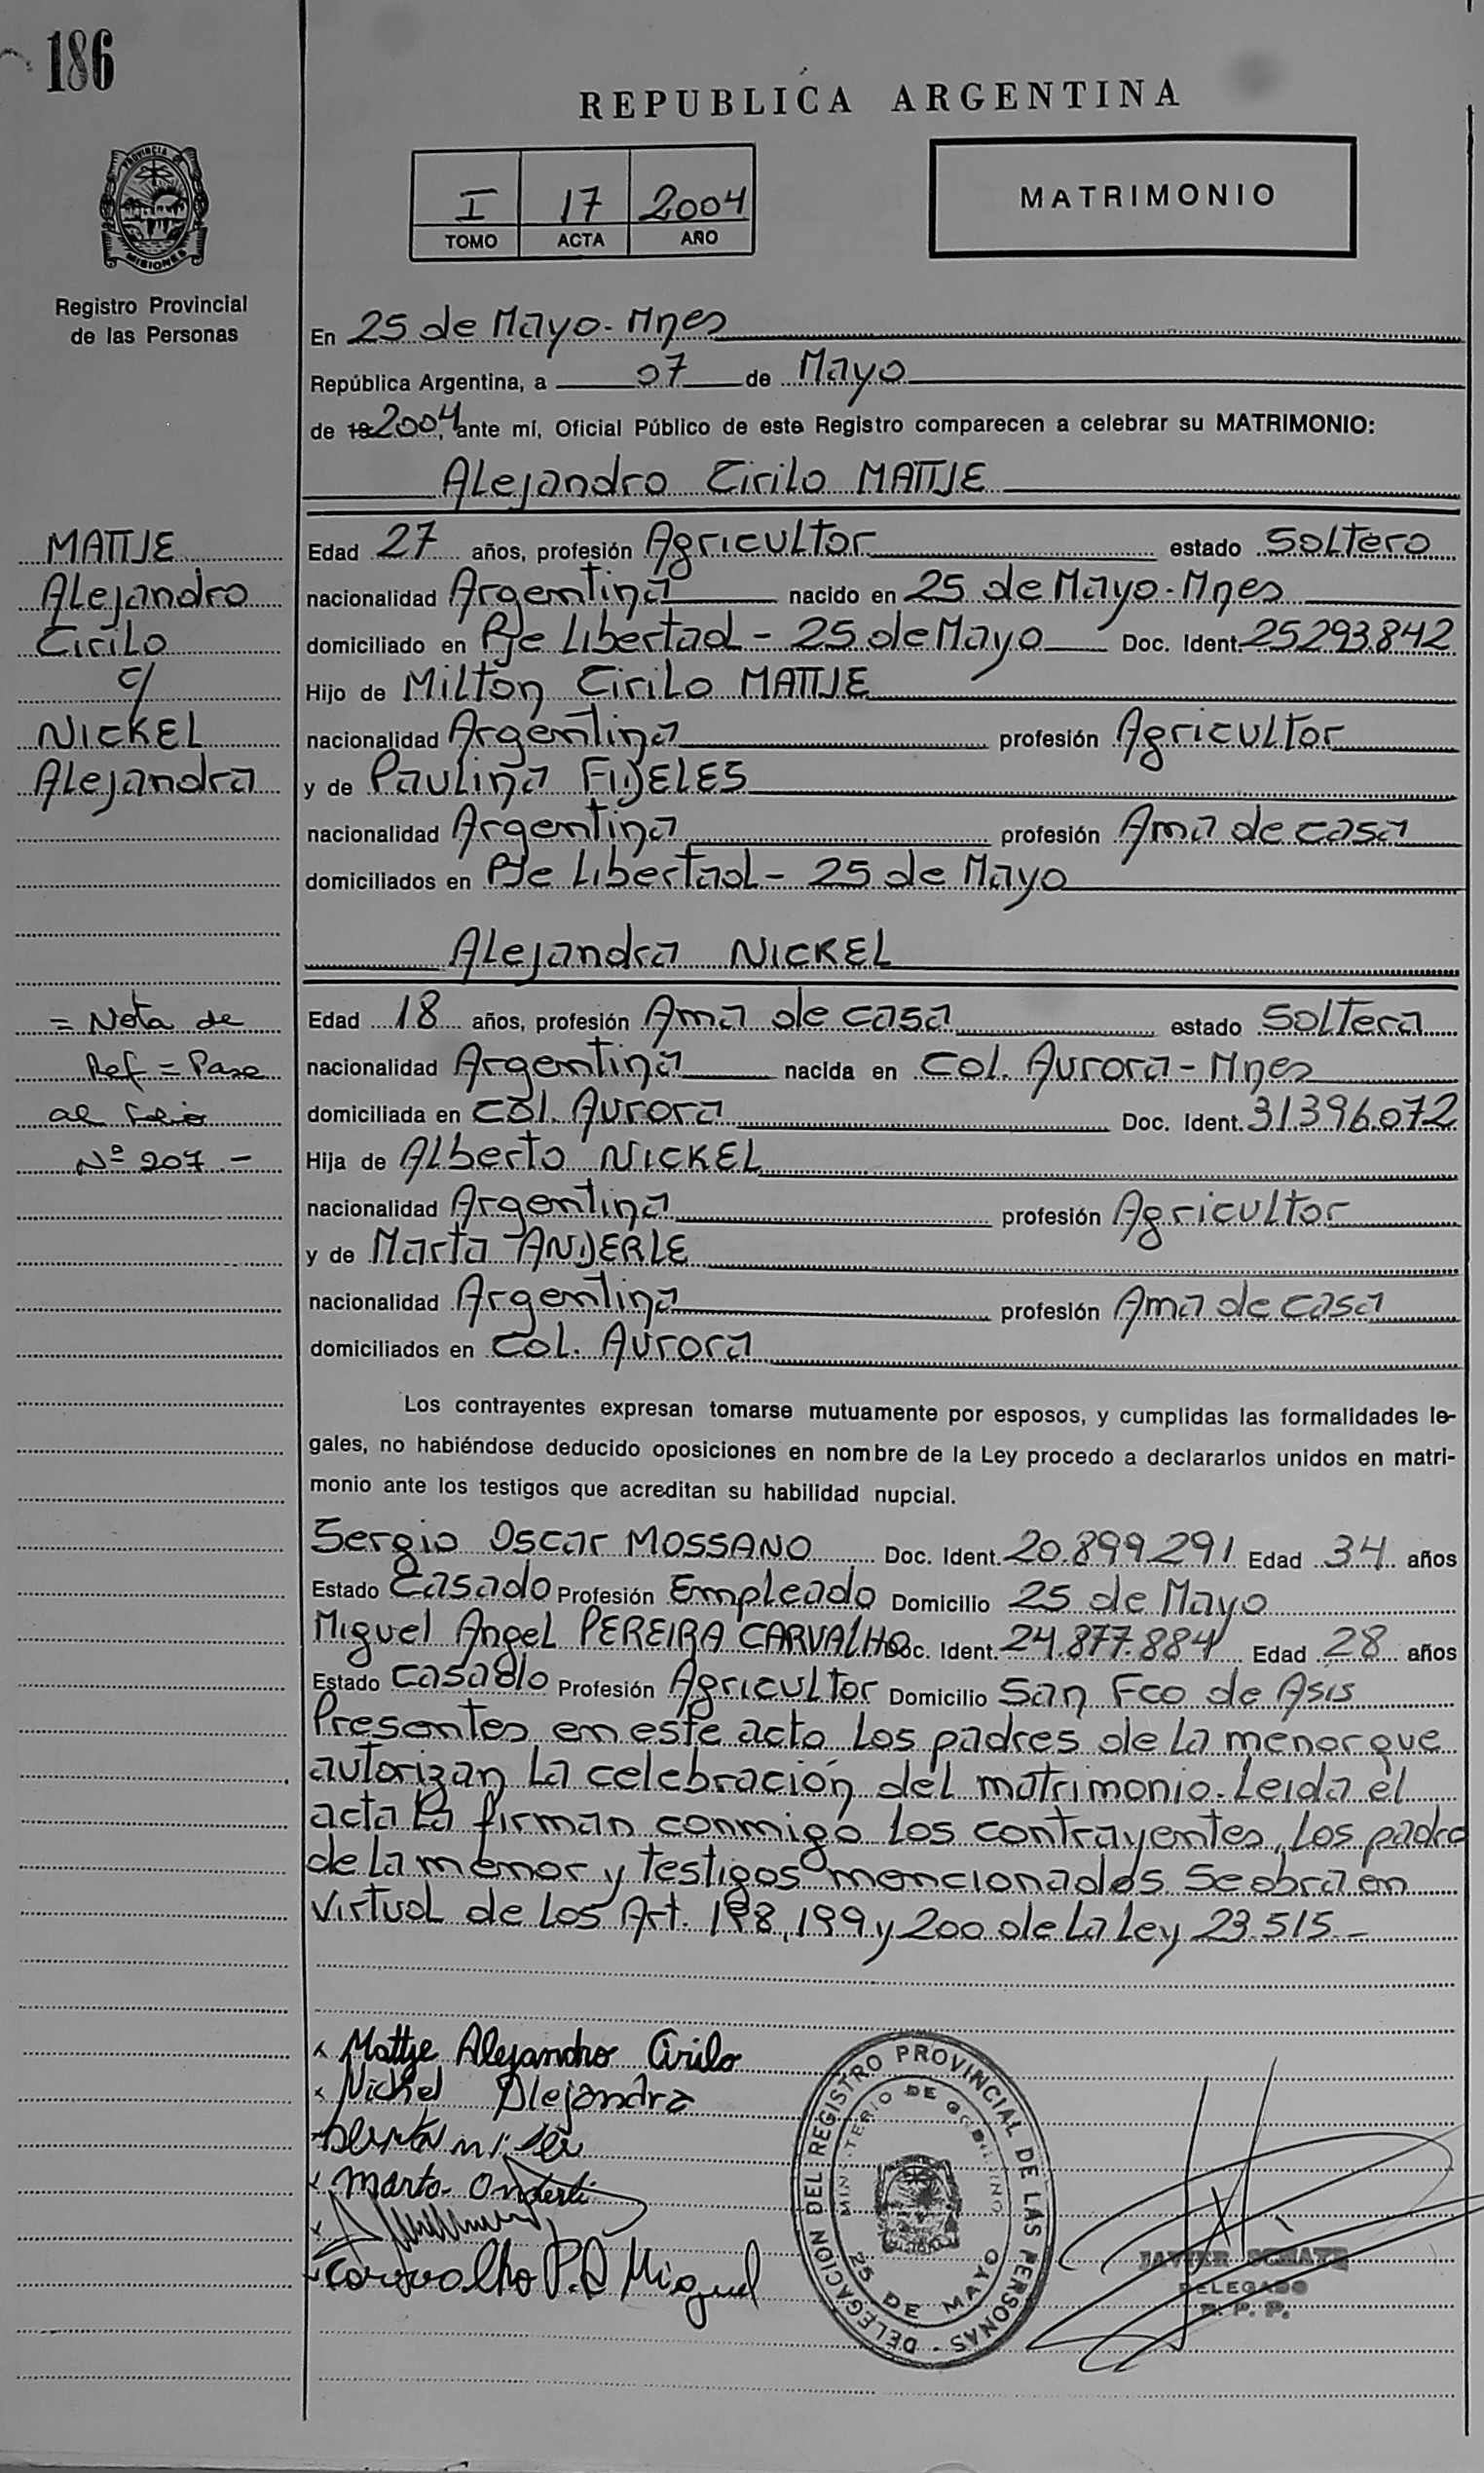 186
REPUBLICA ARGENTINA
PROVINCIA DE
MISIONES
Registro Provincial
de las Personas
I 17 2004
TOMO ACTA AÑO
MATRIMONIO
En 25 de Mayo - Mnes
República Argentina, a 07 de Mayo
de 19 2004, ante mí, Oficial Público de este Registro comparecen a celebrar su MATRIMONIO:
Alejandro Cirilo MATTJE
MATTJE
Alejandro
Cirilo
c/
NICKEL
Alejandra
Edad 27 años, profesión Agricultor estado Soltero
nacionalidad Argentina nacido en 25 de Mayo - Mnes
domiciliado en Pje Libertad - 25 de Mayo Doc. Ident. 25.293.842
Hijo de Milton Cirilo MATTJE
nacionalidad Argentina profesión Agricultor
y de Paulina FIDELES
nacionalidad Argentina profesión Ama de casa
domiciliados en Pje Libertad - 25 de Mayo
Alejandra NICKEL
= Nota de
Ref = Pase
al Folio
Nº 207.-
Edad 18 años, profesión Ama de casa estado Soltera
nacionalidad Argentina nacida en Col. Aurora - Mnes
domiciliada en Col. Aurora Doc. Ident. 31.396.072
Hija de Alberto NICKEL
nacionalidad Argentina profesión Agricultor
y de Marta ANDERLE
nacionalidad Argentina profesión Ama de casa
domiciliados en Col. Aurora
Los contrayentes expresan tomarse mutuamente por esposos, y cumplidas las formalidades le-
gales, no habiéndose deducido oposiciones en nombre de la Ley procedo a declararlos unidos en matri-
monio ante los testigos que acreditan su habilidad nupcial.
Sergio Oscar MOSSANO Doc. Ident. 20.899.291 Edad 34 años
Estado Casado Profesión Empleado Domicilio 25 de Mayo
Miguel Angel PEREIRA CARVALHO Doc. Ident. 24.877.884 Edad 28 años
Estado Casado Profesión Agricultor Domicilio San Fco de Asis
Presentes en este acto los padres de la menor que
autorizan la celebración del matrimonio. Leida el
acta la firman conmigo los contrayentes, los padre
de la menor y testigos mencionados. Se obra en
virtud de los Art. 198, 199 y 200 de la Ley 23.515.-
x Mattje Alejandro Cirilo
x Nickel Alejandra
x Marta
x
Carvalho P.A Miguel
DELEGACION DEL REGISTRO PROVINCIAL DE LAS PERSONAS -
MINISTERIO DE GOBIERNO
25 DE MAYO
JAVIER
DELEGADO
R. P. P.